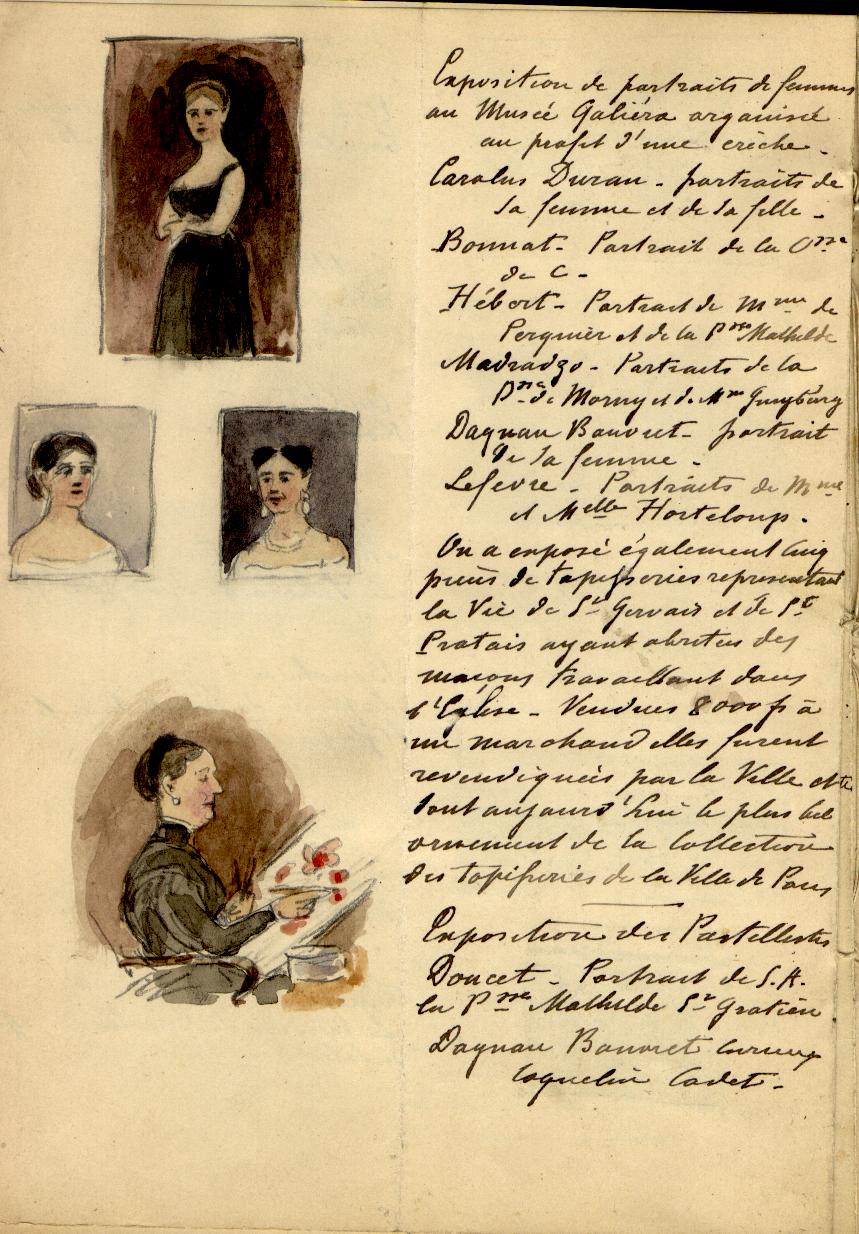 Exposition de portraits de femmes
au Musée Galiéra organisée
au profit d'une crèche.
Carolus Duran - portraits de
sa femme et de sa fille -
Bonnat - Portrait de la Csse
de C -
Hébert - Portrait de Mme de
et de la Psse Mathilde
Madrazo - Portraits de la
Dsse de Morny et de Mme
Dagnan Bouveret - portrait
de sa femme -
Lefevre - Portraits de Mme
et Melle Horteloup.
On a exposé également cinq
pièces de tapisseries representant
la Vie de St Gervais et de St
Protais ayant abritées des
maçons travaillant dans
l'Eglise - Vendues 8000 f à
un marchand elles furent
revendiquées par la Ville et
sont aujourd'hui le plus bel
ornement de la Collection
des tapisseries de la Ville de Paris
Exposition des Pastellistes
Doucet - Portrait de S.A.
la Psse Mathilde St Gratien
Dagnan Bouveret
Coquelin Cadet -